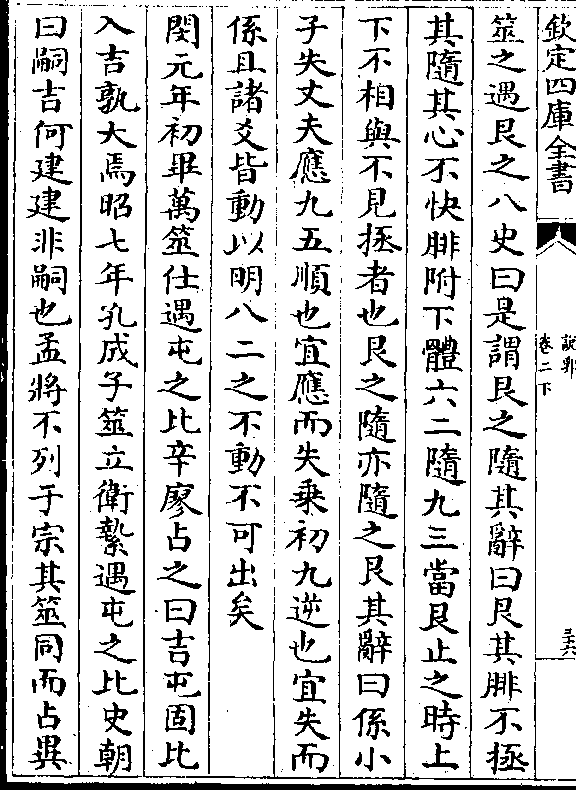 欽定四庫全書
說郛
卷二下
三六
筮之遇艮之八史曰是謂艮之隨其辭曰艮其腓不拯
其隨其心不快腓附下體六二隨九三當艮止之時上
下不相與不見拯者也艮之隨亦隨之艮其辭曰係小
子失丈夫應九五順也宜應而失乗初九逆也宜失而
係且諸爻皆動以明八二之不動不可出矣
閔元年初畢萬筮仕遇屯之比辛廖占之曰吉屯固比
入吉孰大焉昭七年孔成子筮立衛縶遇屯之比史朝
曰嗣吉何建建非嗣也孟將不列于宗其筮同而占異